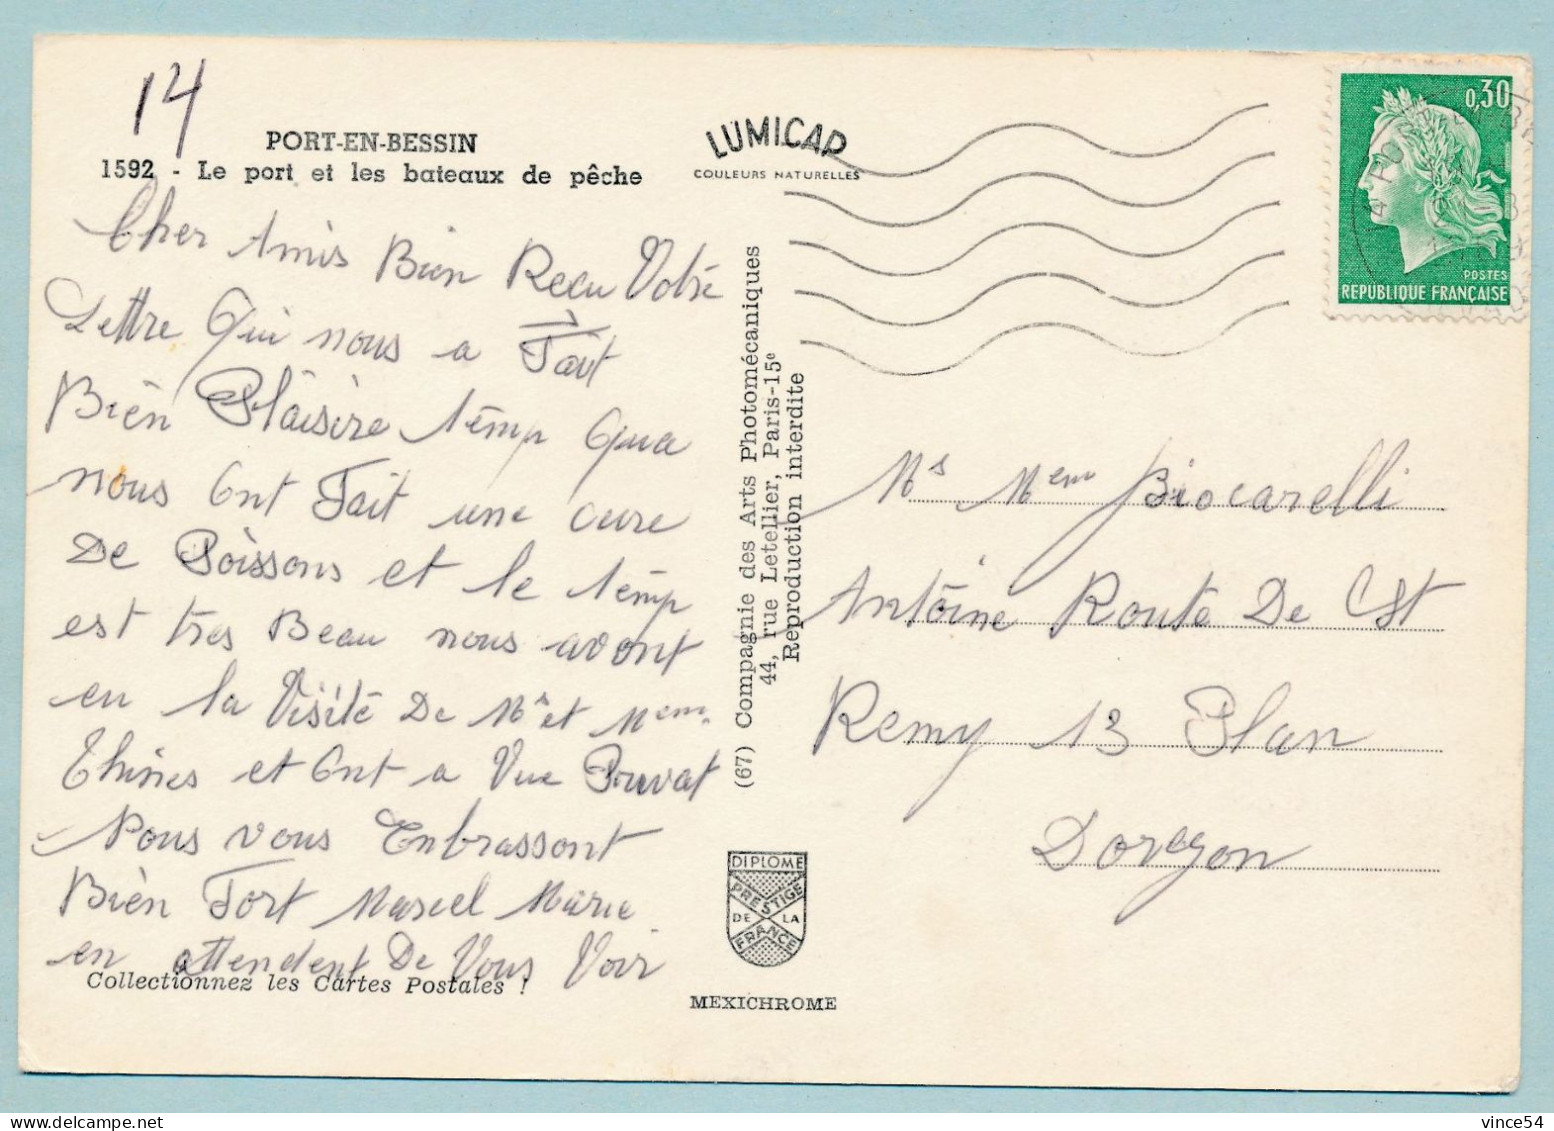 14
PORT-EN-BESSIN
1592 - Le port et les bateaux de pêche
LUMICAP
COULEURS NATURELLES
0,30
POSTES
REPUBLIQUE FRANÇAISE
Cher Amis Bien Recu Votre
Lettre Qui nous a Fait
Bien Plaisire temp Qua
nous Ont Fait une cure
De Poissons et le temp
est tres Beau nous avont
en la Visité De Mr et Mem
Thines et Ont a Vue Pruvat
Nous vous Enbrassont
Bien Fort Marcel Marie
en attendent De Vous Voir
Collectionnez les Cartes Postales !
(67) Compagnie des Arts Photomécaniques
44, rue Letellier, Paris-15e
Reproduction interdite
Ms Mem Biocarelli
Antoine Route De St
Remy 13 Plan
Dorgon
DIPLOME
PRESTIGE
DE LA
FRANCE
MEXICHROME
vince54